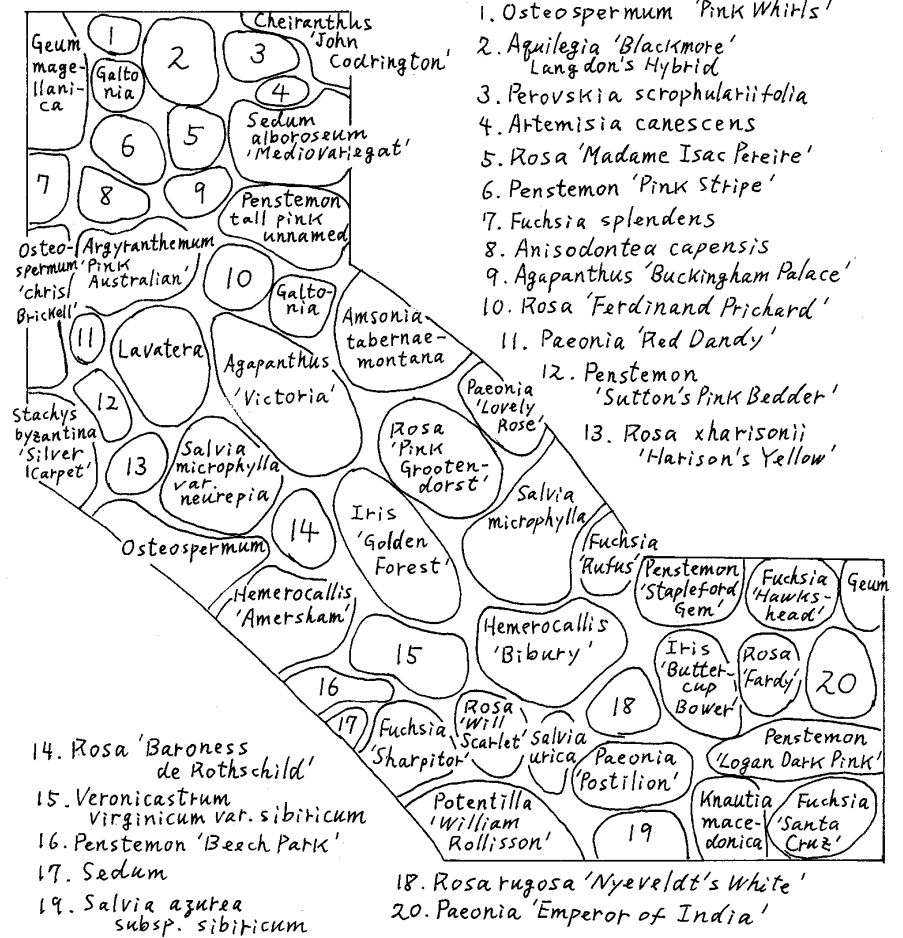 Cheiranthus
'John
Codrington'
Geum
mage-
llani-
ca
1
2
3
Galto
nia
4
Sedum
alboroseum
'Mediovariegat'
5
6
7
8
9
Penstemon
tall pink
unnamed
Osteo-
spermum
'chris/
Brickell'
Argyranthemum
'Pink
Australian'
10
Galto-
nia
Amsonia
tabernae-
montana
11
Lavatera
Agapanthus
'Victoria'
Paeonia
'Lovely
Rose'
12
Stachys
byzantina
'Silver
Carpet'
13
Salvia
microphylla
var.
neurepia
Rosa
'Pink
Grooten-
dorst'
Salvia
microphylla
14
Iris
'Golden
Forest'
Osteospermum
Fuchsia
'Rufus'
Penstemon
'Stapleford
Gem'
Fuchsia
'Hawks-
head'
Geum
Hemerocallis
'Amersham'
15
Hemerocallis
'Bibury'
Iris
'Butter-
cup
Bower'
Rosa
'Fardy'
20
16
17
Fuchsia
'Sharpitor'
Rosa
'Will
Scarlet'
Salvia
urica
18
Paeonia
'Postilion'
Penstemon
'Logan Dark Pink'
Potentilla
'William
Rollisson'
19
Knautia
mace-
donica
Fuchsia
'Santa
Cruz'
1. Osteospermum 'Pink Whirls'
2. Aquilegia 'Blackmore'
Langdon's Hybrid
3. Perovskia scrophulariifolia
4. Artemisia canescens
5. Rosa 'Madame Isac Pereire'
6. Penstemon 'Pink Stripe'
7. Fuchsia splendens
8. Anisodontea capensis
9. Agapanthus 'Buckingham Palace'
10. Rosa 'Ferdinand Prichard'
11. Paeonia 'Red Dandy'
12. Penstemon
'Sutton's Pink Bedder'
13. Rosa xharisonii
'Harison's Yellow'
14. Rosa 'Baroness
de Rothschild'
15. Veronicastrum
virginicum var. sibiricum
16. Penstemon 'Beech Park'
17. Sedum
19. Salvia azurea
subsp. sibiricum
18. Rosa rugosa 'Nyeveldt's White'
20. Paeonia 'Emperor of India'